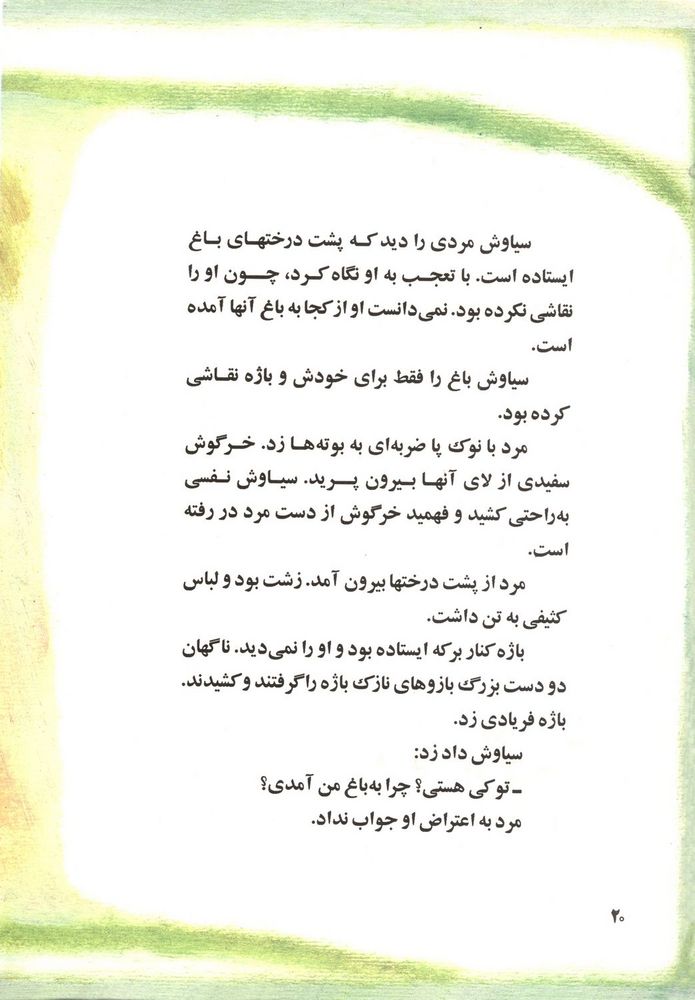 سیاوش مردی را دید که پشت درختهای باغ
ایستاده است. با تعجب به او نگاه کرد، چون او را
نقاشی نکرده بود. نمی‌دانست او از کجا به باغ آنها آمده
است.
سیاوش باغ را فقط برای خودش و باژه نقاشی
کرده بود.
مرد با نوک پا ضربه‌ای به بوته‌ها زد. خرگوش
سفیدی از لای آنها بیرون پرید. سیاوش نفسی
به‌راحتی کشید و فهمید خرگوش از دست مرد در رفته
است.
مرد از پشت درختها بیرون آمد. زشت بود و لباس
کثیفی به تن داشت.
باژه کنار برکه ایستاده بود و او را نمی‌دید. ناگهان
دو دست بزرگ بازوهای نازک باژه را گرفتند و کشیدند.
باژه فریادی زد.
سیاوش داد زد:
ـ تو کی هستی؟ چرا به‌باغ من آمدی؟
مرد به اعتراض او جواب نداد.
۲۰